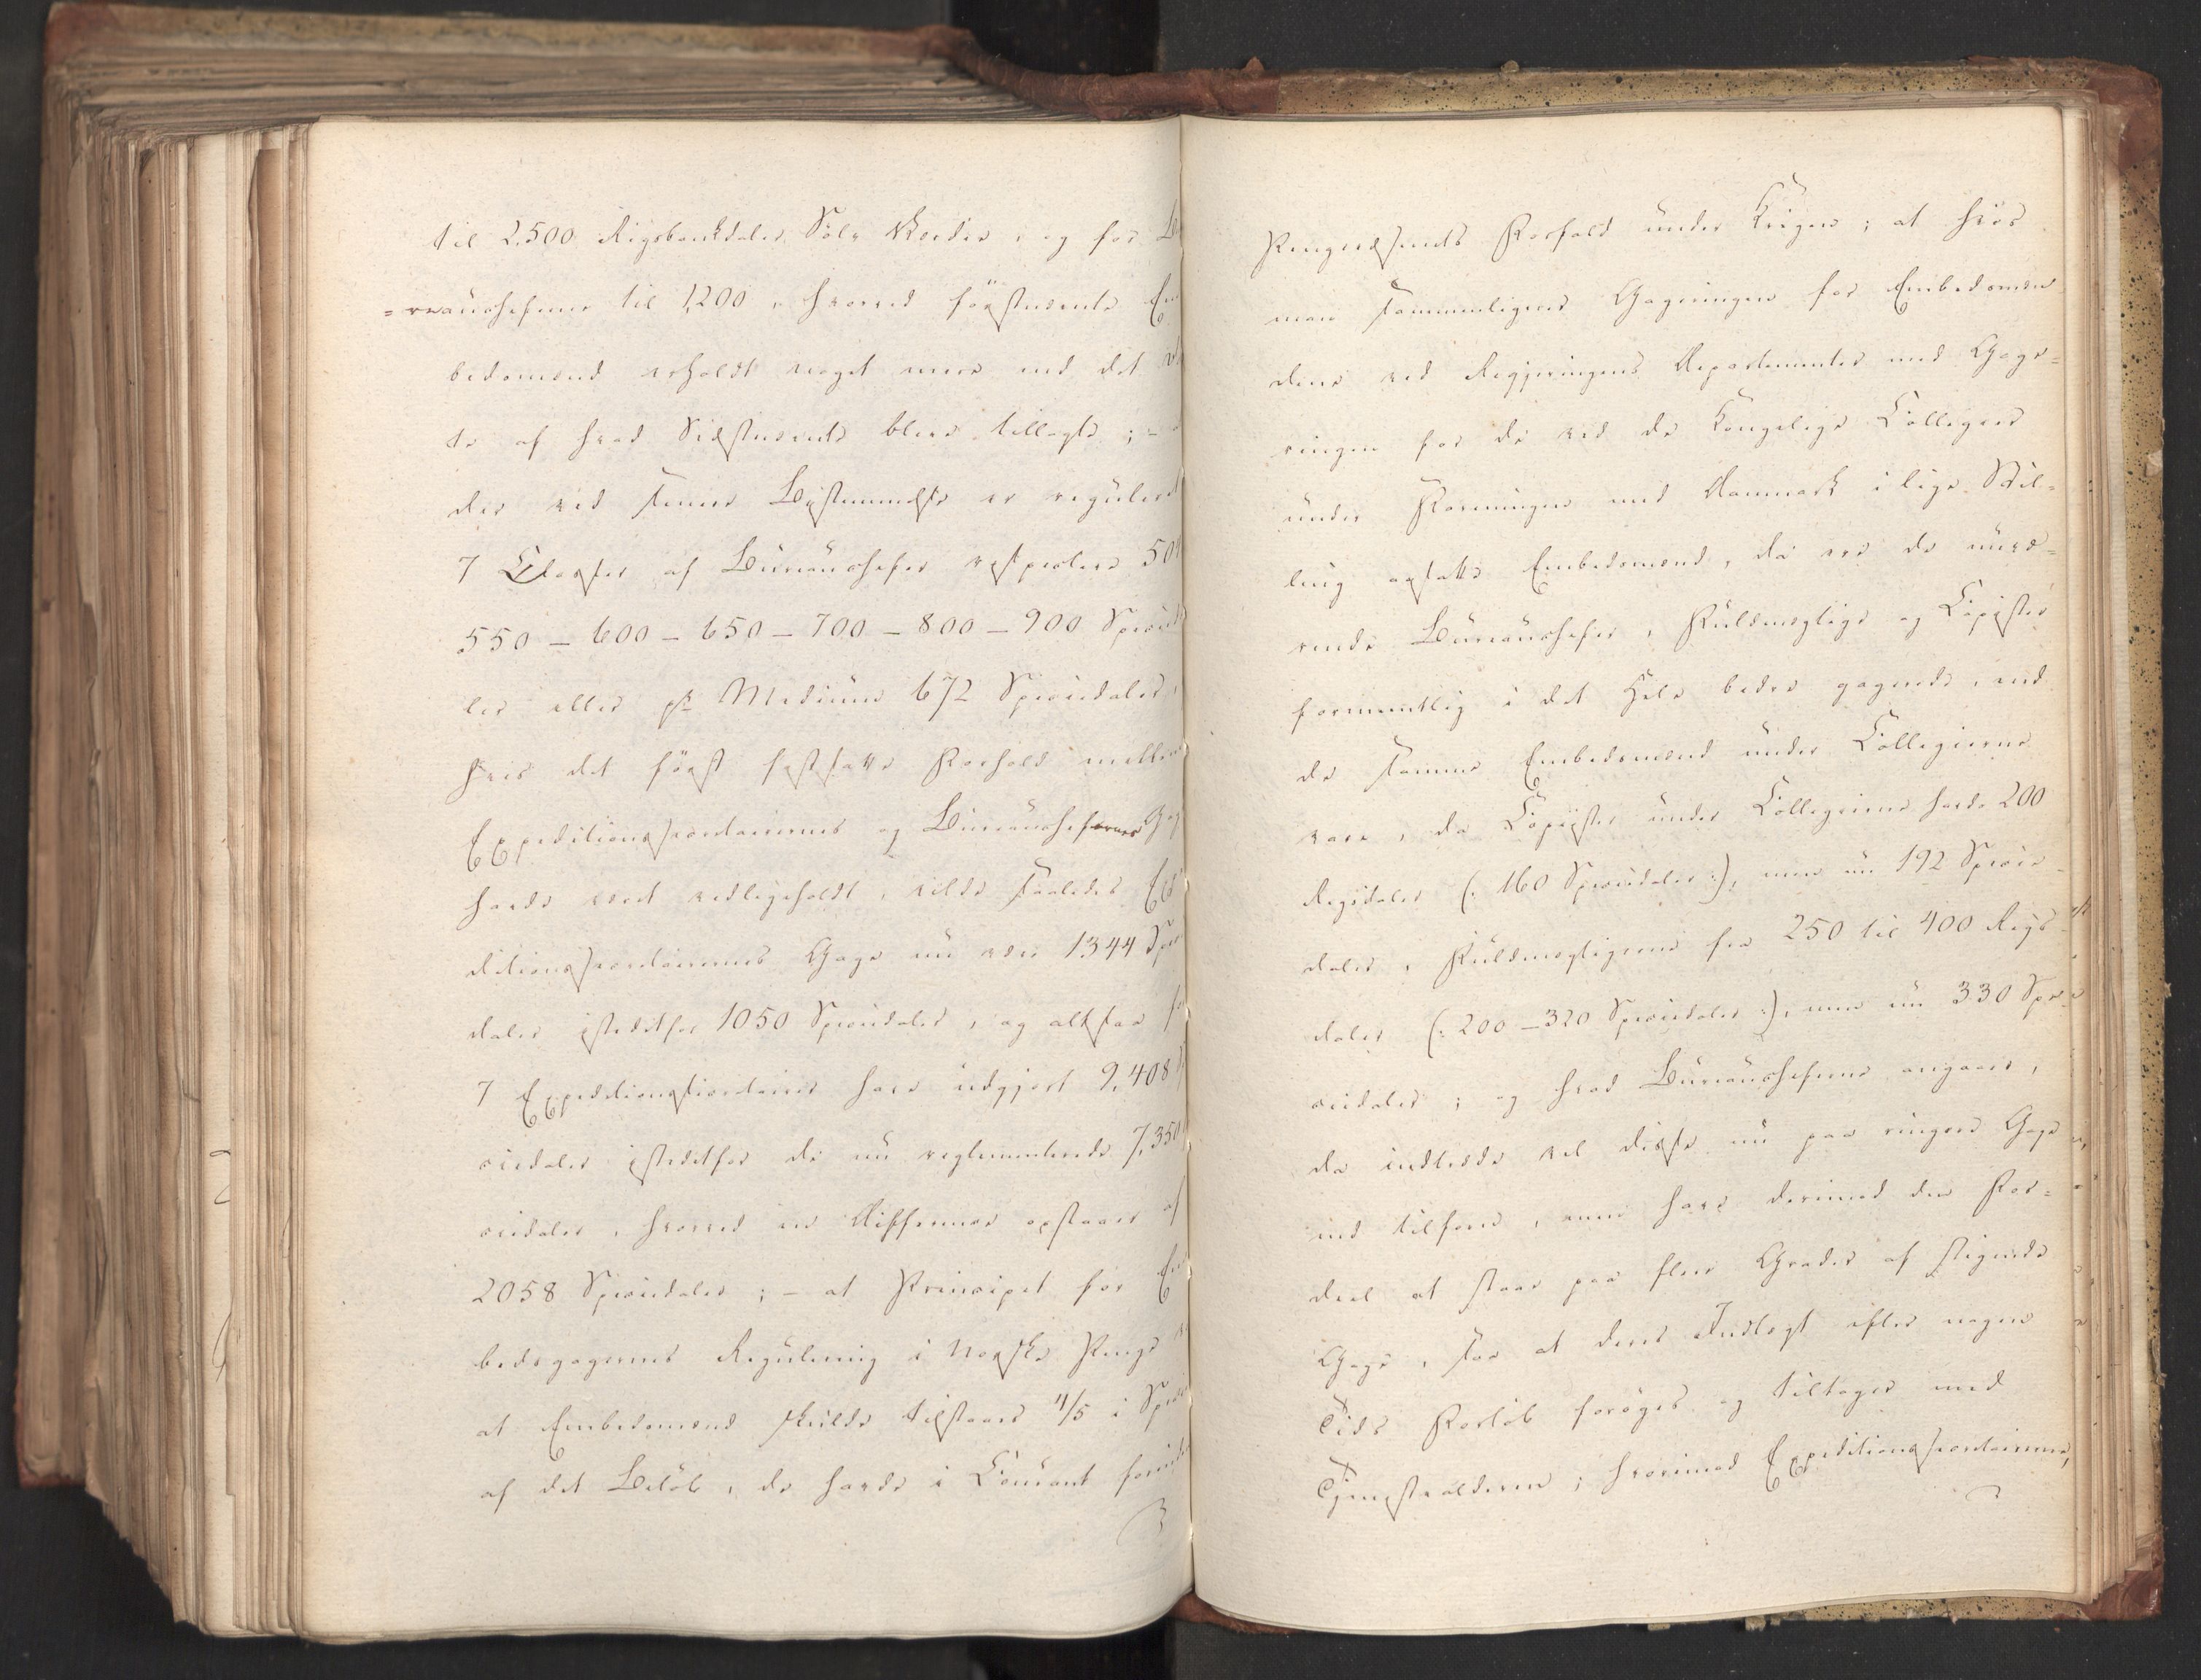 til 2,500 Rigsbankdaler Sölv Værdie, og for B
=reauchefene til 1,200, hvorved förstnævnte Em
bedsmænd erholdt noget mere end det
te af hvad Sidstnævnte bleve tillagte; -
der ved senere Bestemmelse er reguleret
7 Classer af Bureauchefer respective 500
550 - 600 - 650 - 700 - 800 - 900 Specied
ler eller pr Medium 672 Speciedaler,
hvis det först fastsatte Forhold mellem
Expeditionssecretairernes og Bureauchefernes Gag
havde været vedligeholdt, vilde saaledes Expe
ditionssecretairernes Gage nu være 1344 Spe
daler istedetfor 1050 Speciedaler, og altsaa f
7 Expeditionssecretairer have udgjort 9,408
ciedaler istedetfor de nu reglementerede 7,350
ciedaler, hvorved en Difference opstaaer af
2058 Speciedaler; - at Principet for Em
bedsgagernes Regulering i Norske Penge
at Embedsmænd skulde tilstaaes 4/5 i Specie
af det Belöb, de havde i Courant forinden
Pengevæsenets Forfald under Krigen; at hvor
man sammenligner Gageringen for Embedsmæn
dene ved Regjeringens Departementer med Gage=
ringen for de ved de Kongelige Collegier
under Foreningen med Danmark i lige Stil=
ling ansatte Embedsmænd, da ere de nuvæ=
rende Bureauchefer, Fuldmægtige og Copister
formeentlig i det Hele bedre gagerede, end
de samme Embedsmænd under Collegierne
vare, da Copister under Collegierne havde 200
Rigsdaler (: 160 Speciedaler :), men nu 192 Specie
daler, Fuldmægtigene fra 250 til 400 Rigs
daler (: 200 - 320 Speciedaler :), men nu 330 Spe
ciedaler; og hvad Bureauchefene angaaer,
da indtræde vel disse nu paa ringere Gage
end tilforn, men have derimod den For=
deel at staae paa flere Grader af stigende
Gage, saa at deres Indtægt efter nogen
Tids Forlöb foröges og tiltager med
Tjenestealderen; hvorimod Expeditionssecretairerne,